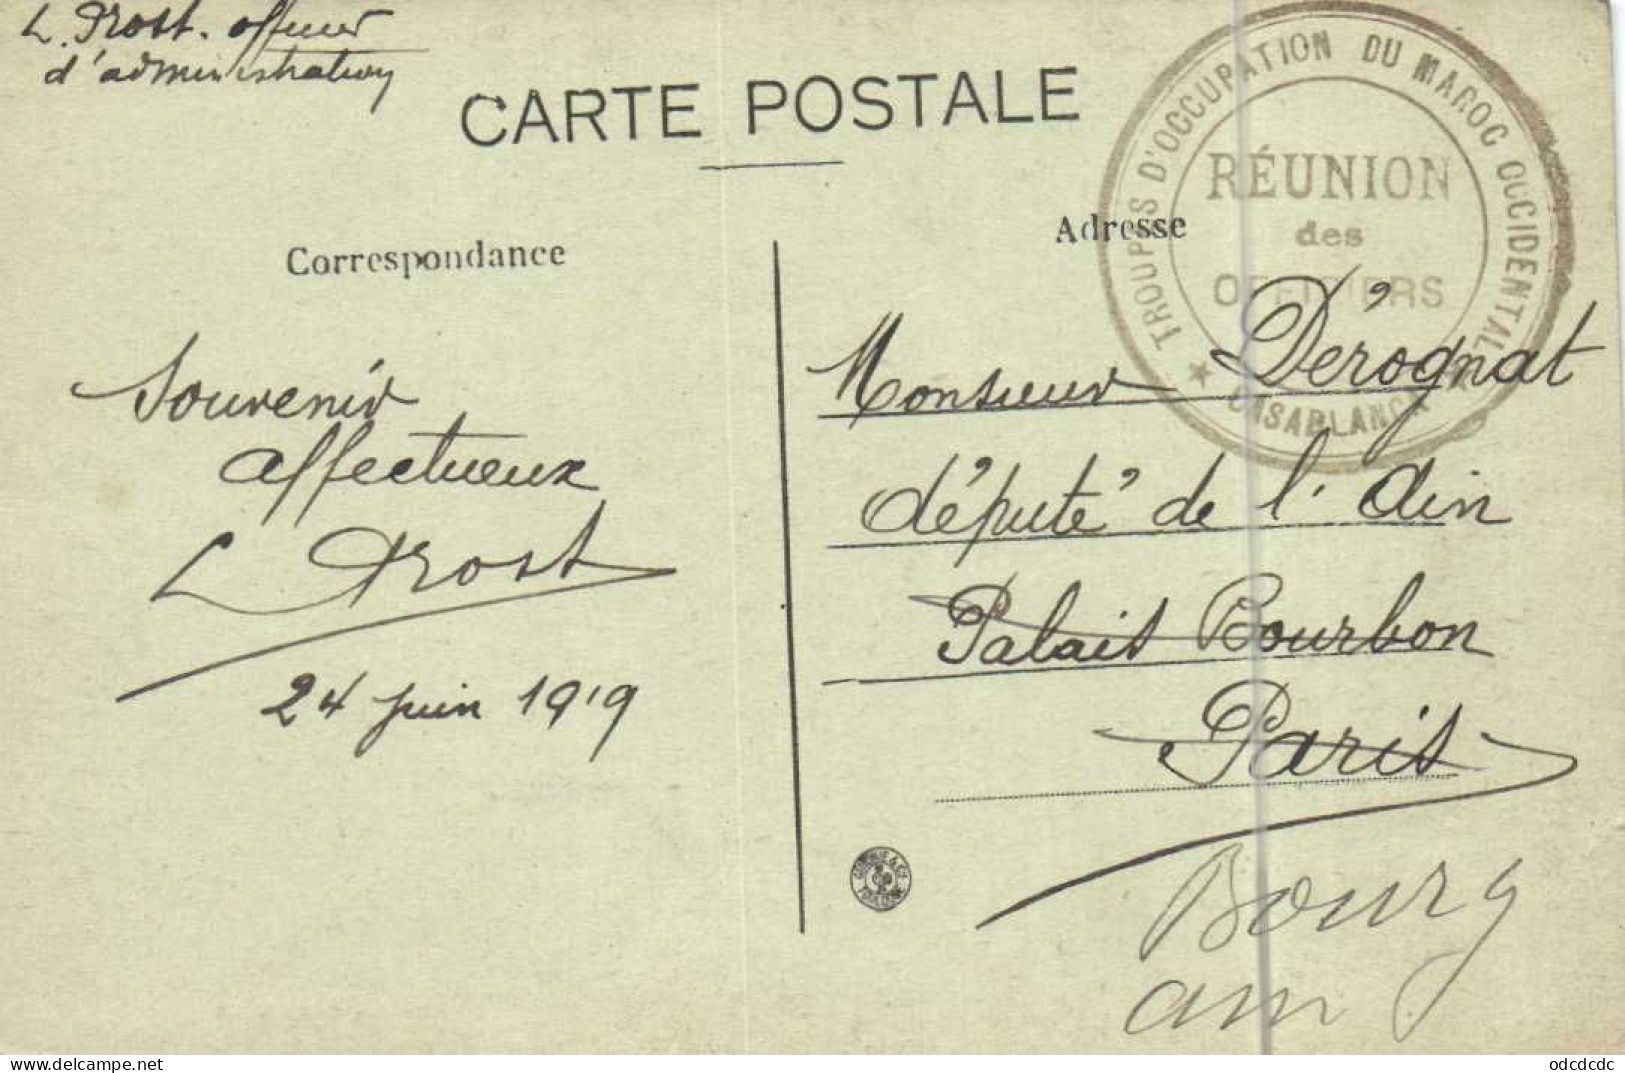 L. Prost. officier
d'administration
CARTE POSTALE
TROUPES D'OCCUPATION DU MAROC OCCIDENTAL
RÉUNION
des
OFFICIERS
★ CASABLANCA ★
Correspondance
Adresse
Souvenir
affectueux
L Prost
24 juin 1919
Monsieur Dérognat
député de l'Ain
Palais Bourbon
Paris
Bourg
ain
www.delcampe.net
odcdcdc